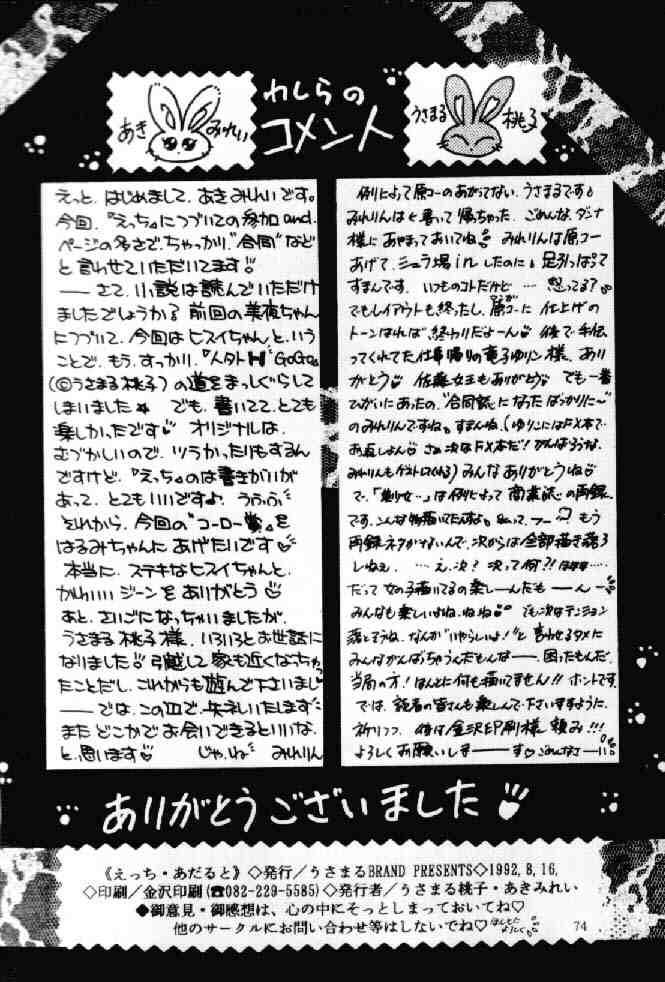 わしらの
コメント
あき みれい
うさまる 桃子
えっと、はじめまして、あきみれいです。
今回、『えっち』につづいての参加and.
ページの多さで、ちゃっかり、"合同"など
と言わせていただいてます!
——さて、小説は読んでいただけ
ましたでしょうか? 前回の美夜ちゃん
につづいて、今回はヒスイちゃん、という
ことで、もう、すっかり、『人タトH GoGo』
(©うさまる桃子)の道をまっしぐらして
しまいました★ でも、書いてて、とても
楽しかったです♡ オリジナルは、
むづかしいので、ツラかったりもするん
ですけど、『えっち』のは書きがいが
あって、とてもいいです♪ うふふ
それから、今回の"コーロー賞"を
はるみちゃんに あげたいです♡
本当に、ステキなヒスイちゃんと、
かわいい ジーンを ありがとう♡
あと、さいごになっちゃいましたが、
うさまる桃子様、いろいろとお世話に
なりました♡ 引越して家も近くなっちゃっ
たことだし、これからも遊んで下さいまし
——では、この辺で、失礼いたします
またどこかでお会いできるといいな、
と、思います♡ じゃ、ね みれりん
例によって原コーのあがってない、うさまるです
みれりんは書って帰ちゃった、ごめんな、ダンナ
様にあやまっておいてね♡ みれりんは原コー
あげて、シュラ場inしたのに、足引っぱって
すまんです、いつものコトだけど… 怒ってる?
でもレイアウトも終ったし、原コーに仕上げの
トーンはれば、終わりだよーん♡ 後で手伝
ってくれてた仕事帰りの竜子ゆリン様、あり
がとう♡ 佐藤女王もありがとう でも一番
ひがいにあったの、"合同誌"になったばっかりに〜
のみれりんですね、すまんね、(ゆりこにはFX本で
お返しよん♡ さぁ次はFX本だ! がんばろうな、
みれりんもゲストロくれる) みんなありがとうね♡
で、「美少女…」は例によって商業誌の再録
です、こんな物描いてたんすよ、 もう
再録ネタがないんで、次からは全部描き落ろ
しねぇ、 …え、次? 次って何?!
だって 女の子描いてるの楽しーんだもーん
みんなも楽しいよね、ねね♡ でも次はテンション
落とそうね、なんか"いやらしいよ!"と言わせるタメに
みんながんばっちゃうんだもんなー、困ったもんだ、
当局の方! ほんとに何も描いてません!! ホントです、
では、読者の皆さんも楽しんで下さいますように、
祈りつつ、後は金沢印刷様 頼み!!!
よろしくお願いしま———す♡ ごめんなさーい
ありがとうございました♡
《えっち・あだると》◇発行/うさまるBRAND PRESENTS◇1992,8,16,
◇印刷/金沢印刷(☎082-229-5585)◇発行者/うさまる桃子・あきみれい
●御意見・御感想は、心の中にそっとしまっておいてね♡
他のサークルにお問い合わせ等はしないでね♡
74